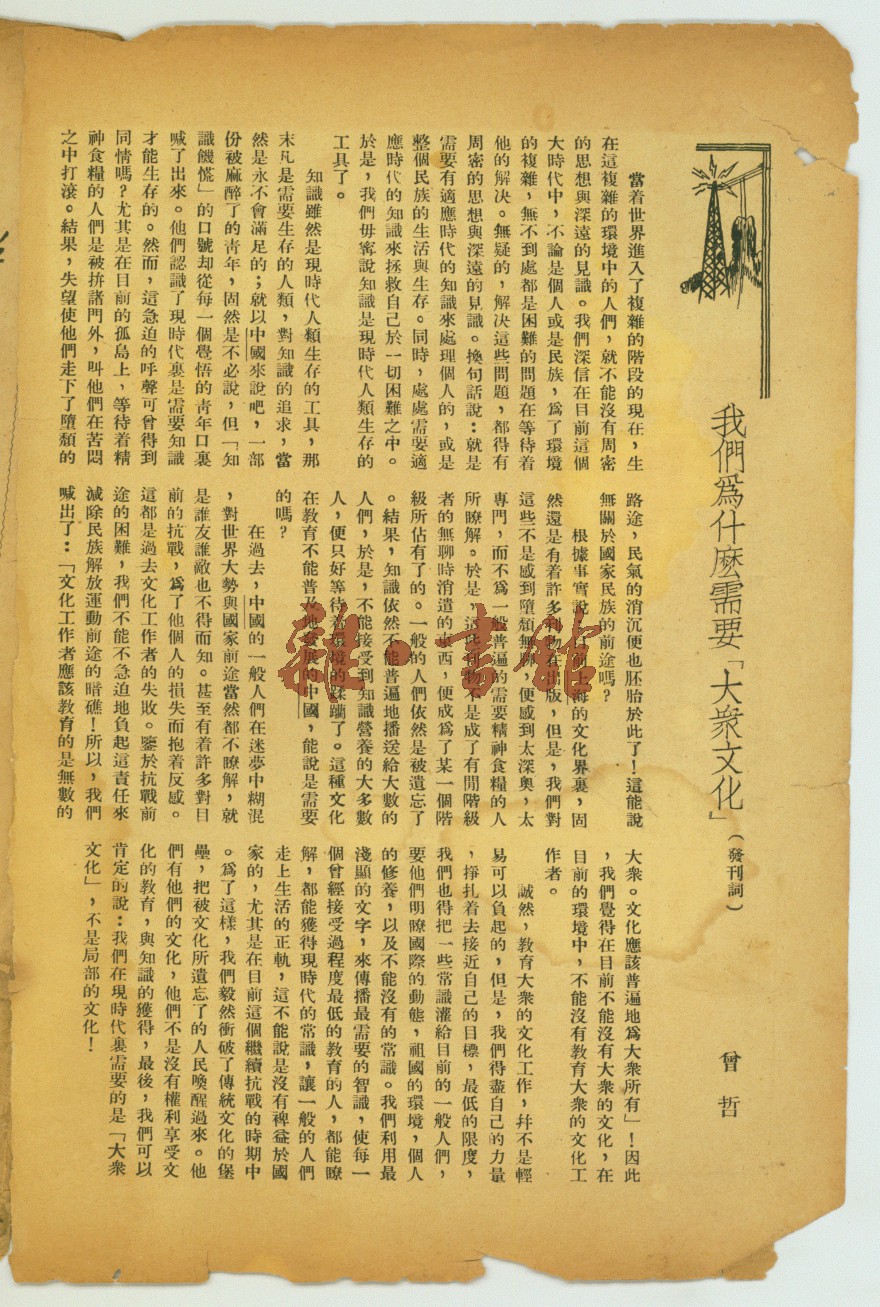 我們爲什麽需要「大衆文化」（發刊詞）
曾哲
當着世界進入了複雜的階段的現在，生
在這複雜的環境中的人們，就不能沒有周密
的思想與深遠的見識。我們深信在目前這個
大時代中，不論是個人或是民族，爲了環境
的複雜，無不到處都是困難的問題在等待着
他的解決。無疑的，解決這些問題，都得有
周密的思想與深遠的見識。換句話說：就是
需要有適應時代的知識來處理個人的，或是
整個民族的生活與生存。同時，處處需要適
應時代的知識來拯救自己於一切困難之中。
於是，我們毋寧說知識是現時代人類生存的
工具了。
知識雖然是現時代人類生存的工具，那
末凡是需要生存的人類，對知識的追求，當
然是永不會滿足的；就以中國來說吧，一部
份被麻醉了的靑年，固然是不必說，但「知
識饑慌」的口號却從每一個覺悟的靑年口裏
喊了出來。他們認識了現時代裏是需要知識
才能生存的。然而，這急迫的呼聲可曾得到
同情嗎？尤其是在目前的孤島上，等待着精
神食糧的人們是被拚諸門外，叫他們在苦悶
之中打滾。結果，失望使他們走下了墮頹的
路途，民氣的消沉便也胚胎於此了！這能說
無關於國家民族的前途嗎？
根據事實說，目前上海的文化界裏，固
然還是有着許多刊物在出版，但是，我們對
這些不是感到墮頹無聊，便感到太深奧，太
專門，而不爲一般普遍的需要精神食糧的人
所瞭解。於是，這些刊物不是成了有閒階級
者的無聊時消遣的東西，便成爲了某一個階
級所佔有了的。一般的人們依然是被遺忘了
。結果，知識依然不能普遍地播送給大數的
人們，於是，不能接受到知識營養的大多數
人，便只好等待着環境的蹂躪了。這種文化
在教育不能普及地發展的中國，能說是需要
的嗎？
在過去，中國的一般人們在迷夢中糊混
，對世界大勢與國家前途當然都不瞭解，就
是誰友誰敵也不得而知。甚至有着許多對目
前的抗戰，爲了他個人的損失而抱着反感。
這都是過去文化工作者的失敗。鑒於抗戰前
途的困難，我們不能不急迫地負起這責任來
減除民族解放運動前途的暗礁！所以，我們
喊出了：「文化工作者應該教育的是無數的
大衆。文化應該普遍地爲大衆所有」！因此
，我們覺得在目前不能沒有大衆的文化，在
目前的環境中，不能沒有教育大衆的文化工
作者。
誠然，教育大衆的文化工作，幷不是輕
易可以負起的，但是，我們得盡自己的力量
，掙扎着去接近自己的目標，最低的限度，
我們也得把一些常識灌給目前的一般人們，
要他們明瞭國際的動態，祖國的環境，個人
的修養，以及不能沒有的常識。我們利用最
淺顯的文字，來傳播最需要的智識，使每一
個曾經接受過程度最低的教育的人，都能瞭
解，都能獲得現時代的常識，讓一般的人們
走上生活的正軌，這不能說是沒有裨益於國
家的，尤其是在目前這個繼續抗戰的時期中
。爲了這樣，我們毅然衝破了傳統文化的堡
壘，把被文化所遺忘了的人民喚醒過來。他
們有他們的文化，他們不是沒有權利享受文
化的教育，與知識的獲得，最後，我們可以
肯定的說：我們在現時代裏需要的是「大衆
文化」，不是局部的文化！
雜·書館